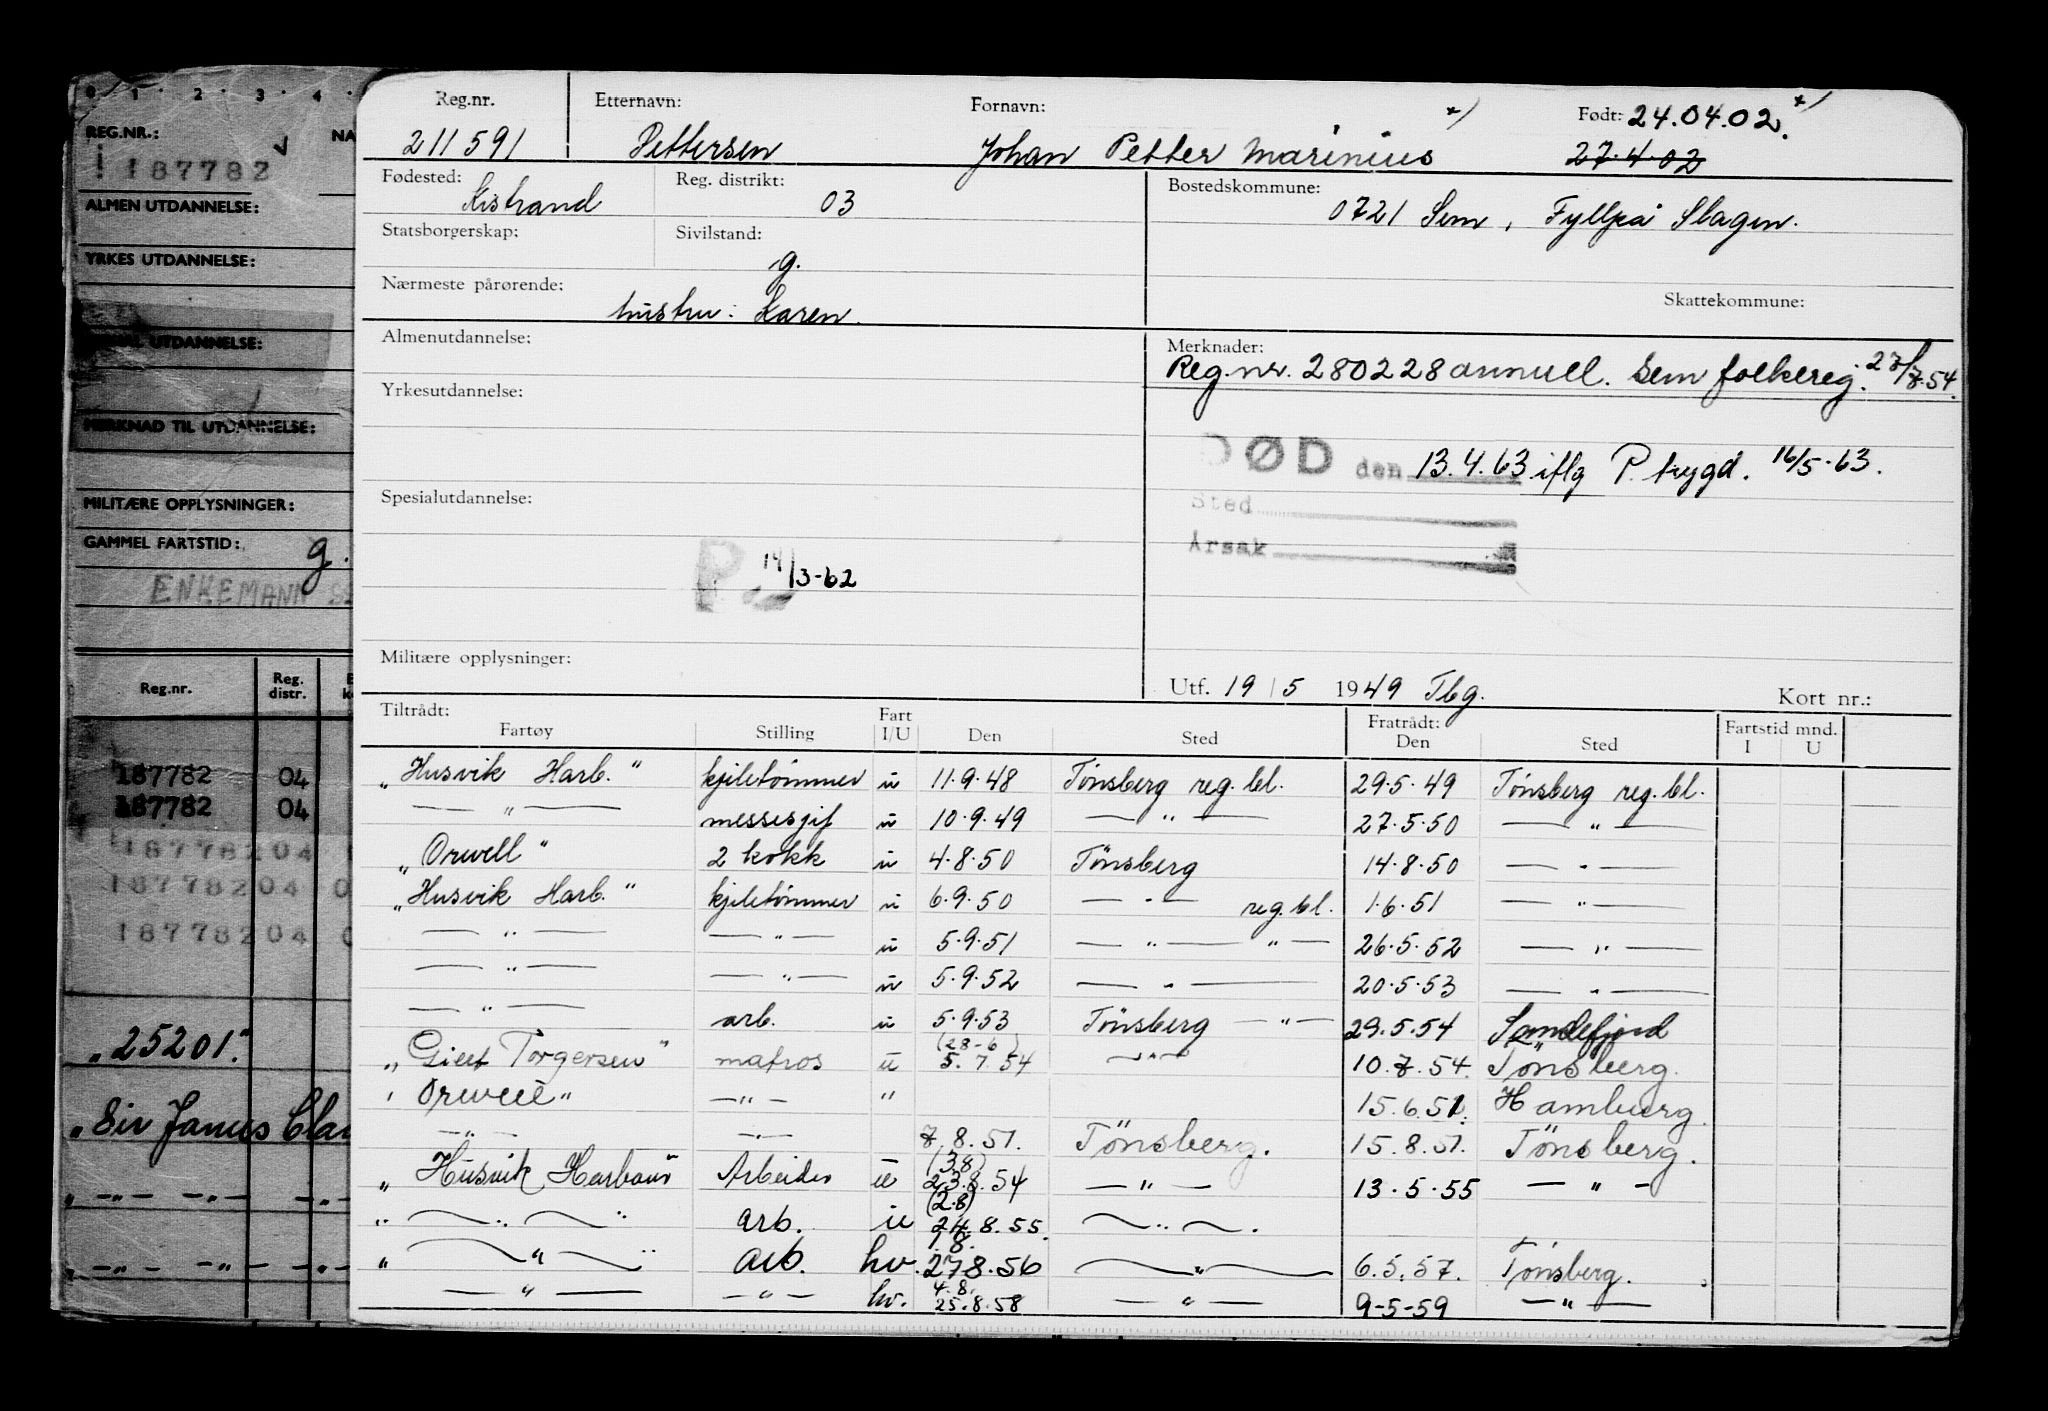 0 1 2 3 4
REG.NR.: NA
187782
ALMEN UTDANNELSE:
YRKES UTDANNELSE:
UTDANNELSE:
MERKNAD TIL UTDANNELSE:
MILITÆRE OPPLYSNINGER:
GAMMEL FARTSTID: g.
ENKEMANN
Reg.nr. Reg. distr.
187782 04
187782 04
187782 04
187782 04
187782 04
"25201."
"Sir James Cla
" —"— —"— —"
—"— —"— —"—
Reg.nr. Etternavn: Fornavn: x) Født: 24.04.02. x)
211591 Pettersen Johan Petter Marinius 27.4.02
Fødested: Kistrand Reg. distrikt: 03 Bostedskommune: 0721 Sem, Fyllpå Slagen.
Statsborgerskap: Sivilstand: g.
Nærmeste pårørende: hustru: Karen. Skattekommune:
Almenutdannelse: Merknader:
Reg.nr. 280228 annull. Sem folkereg. 27/7.54.
Yrkesutdannelse:
DØD den 13.4.63 iflg P. trygd. 16/5-63.
Spesialutdannelse: Sted
Årsak
P. 14/3-62
Militære opplysninger:
Utf. 19/5 1949 Tbg. Kort nr.:
Tiltrådt: Fart Fratrådt: Fartstid mnd.
Fartøy Stilling I/U Den Sted Den Sted I U
"Husvik Harb." kjeletømmer u 11.9.48 Tønsberg reg. bl. 29.5.49 Tønsberg reg. bl.
—"— messegj u 10.9.49 —"— 27.5.50 —"—
"Orwell" 2 kokk u 4.8.50 Tönsberg 14.8.50 —"—
"Husvik Harb." kjeletømmer u 6.9.50 —"— reg. bl. 1.6.51 —"—
—"— —"— u 5.9.51 —"— "— 26.5.52 —"—
—"— —"— u 5.9.52 —"— 20.5.53 —"—
—"— arb. u 5.9.53 Tönsberg —"— 29.5.54 Sandefjord
"Giert Torgersen" matros u (28-6) 5.7.54 —"— 10.7.54. Tönsberg.
"Orwell" —"— " 15.6.51. Hamburg.
—"— —"— 7.8.51. Tönsberg. 15.8.51. Tönsberg.
" Husvik Harbour Arbeider u (3.8) 23.8.54 —"— 13.5.55 —"—
" —"— " arb. u (2.8) 24.8.55. —"—.
" —"— " arb. hv. 1.8. 27.8.56 —"— 6.5.57. Tönsberg.
—"— —"— hv. 4.8. 25.8.58 —"— 9-5-59 —"—